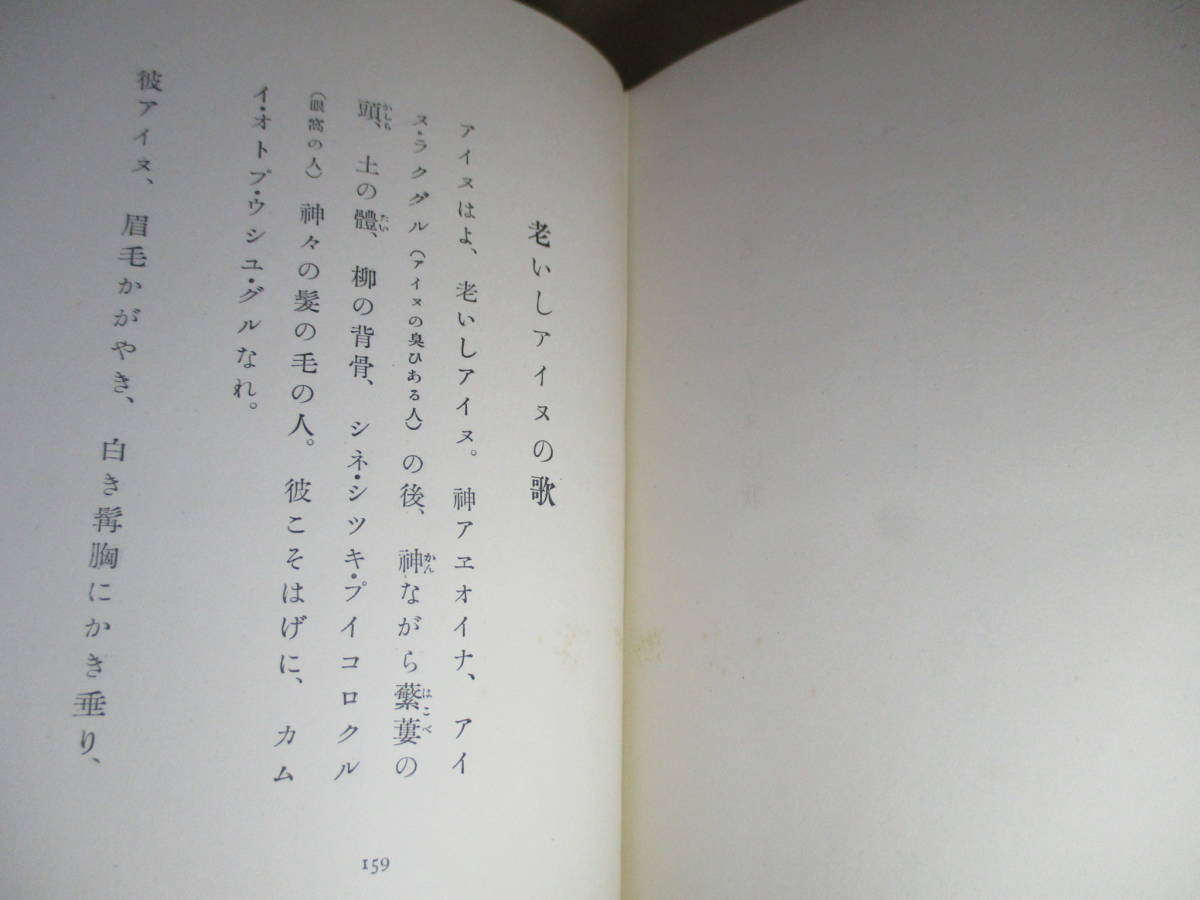 老いしアイヌの歌
アイヌはよ、老いしアイヌ。神アヱオイナ、アイ
ヌ・ラクグル（アイヌの臭ひある人）の後、神ながら蘩蔞の
頭、土の體、柳の背骨、シネ・シツキ・プイコロクル
（眼窩の人）神々の髪の毛の人。彼こそはげに、カム
イ・オトプ・ウシユ・グルなれ。
彼アイヌ、眉毛かがやき、白き髯胸にかき垂り、
159